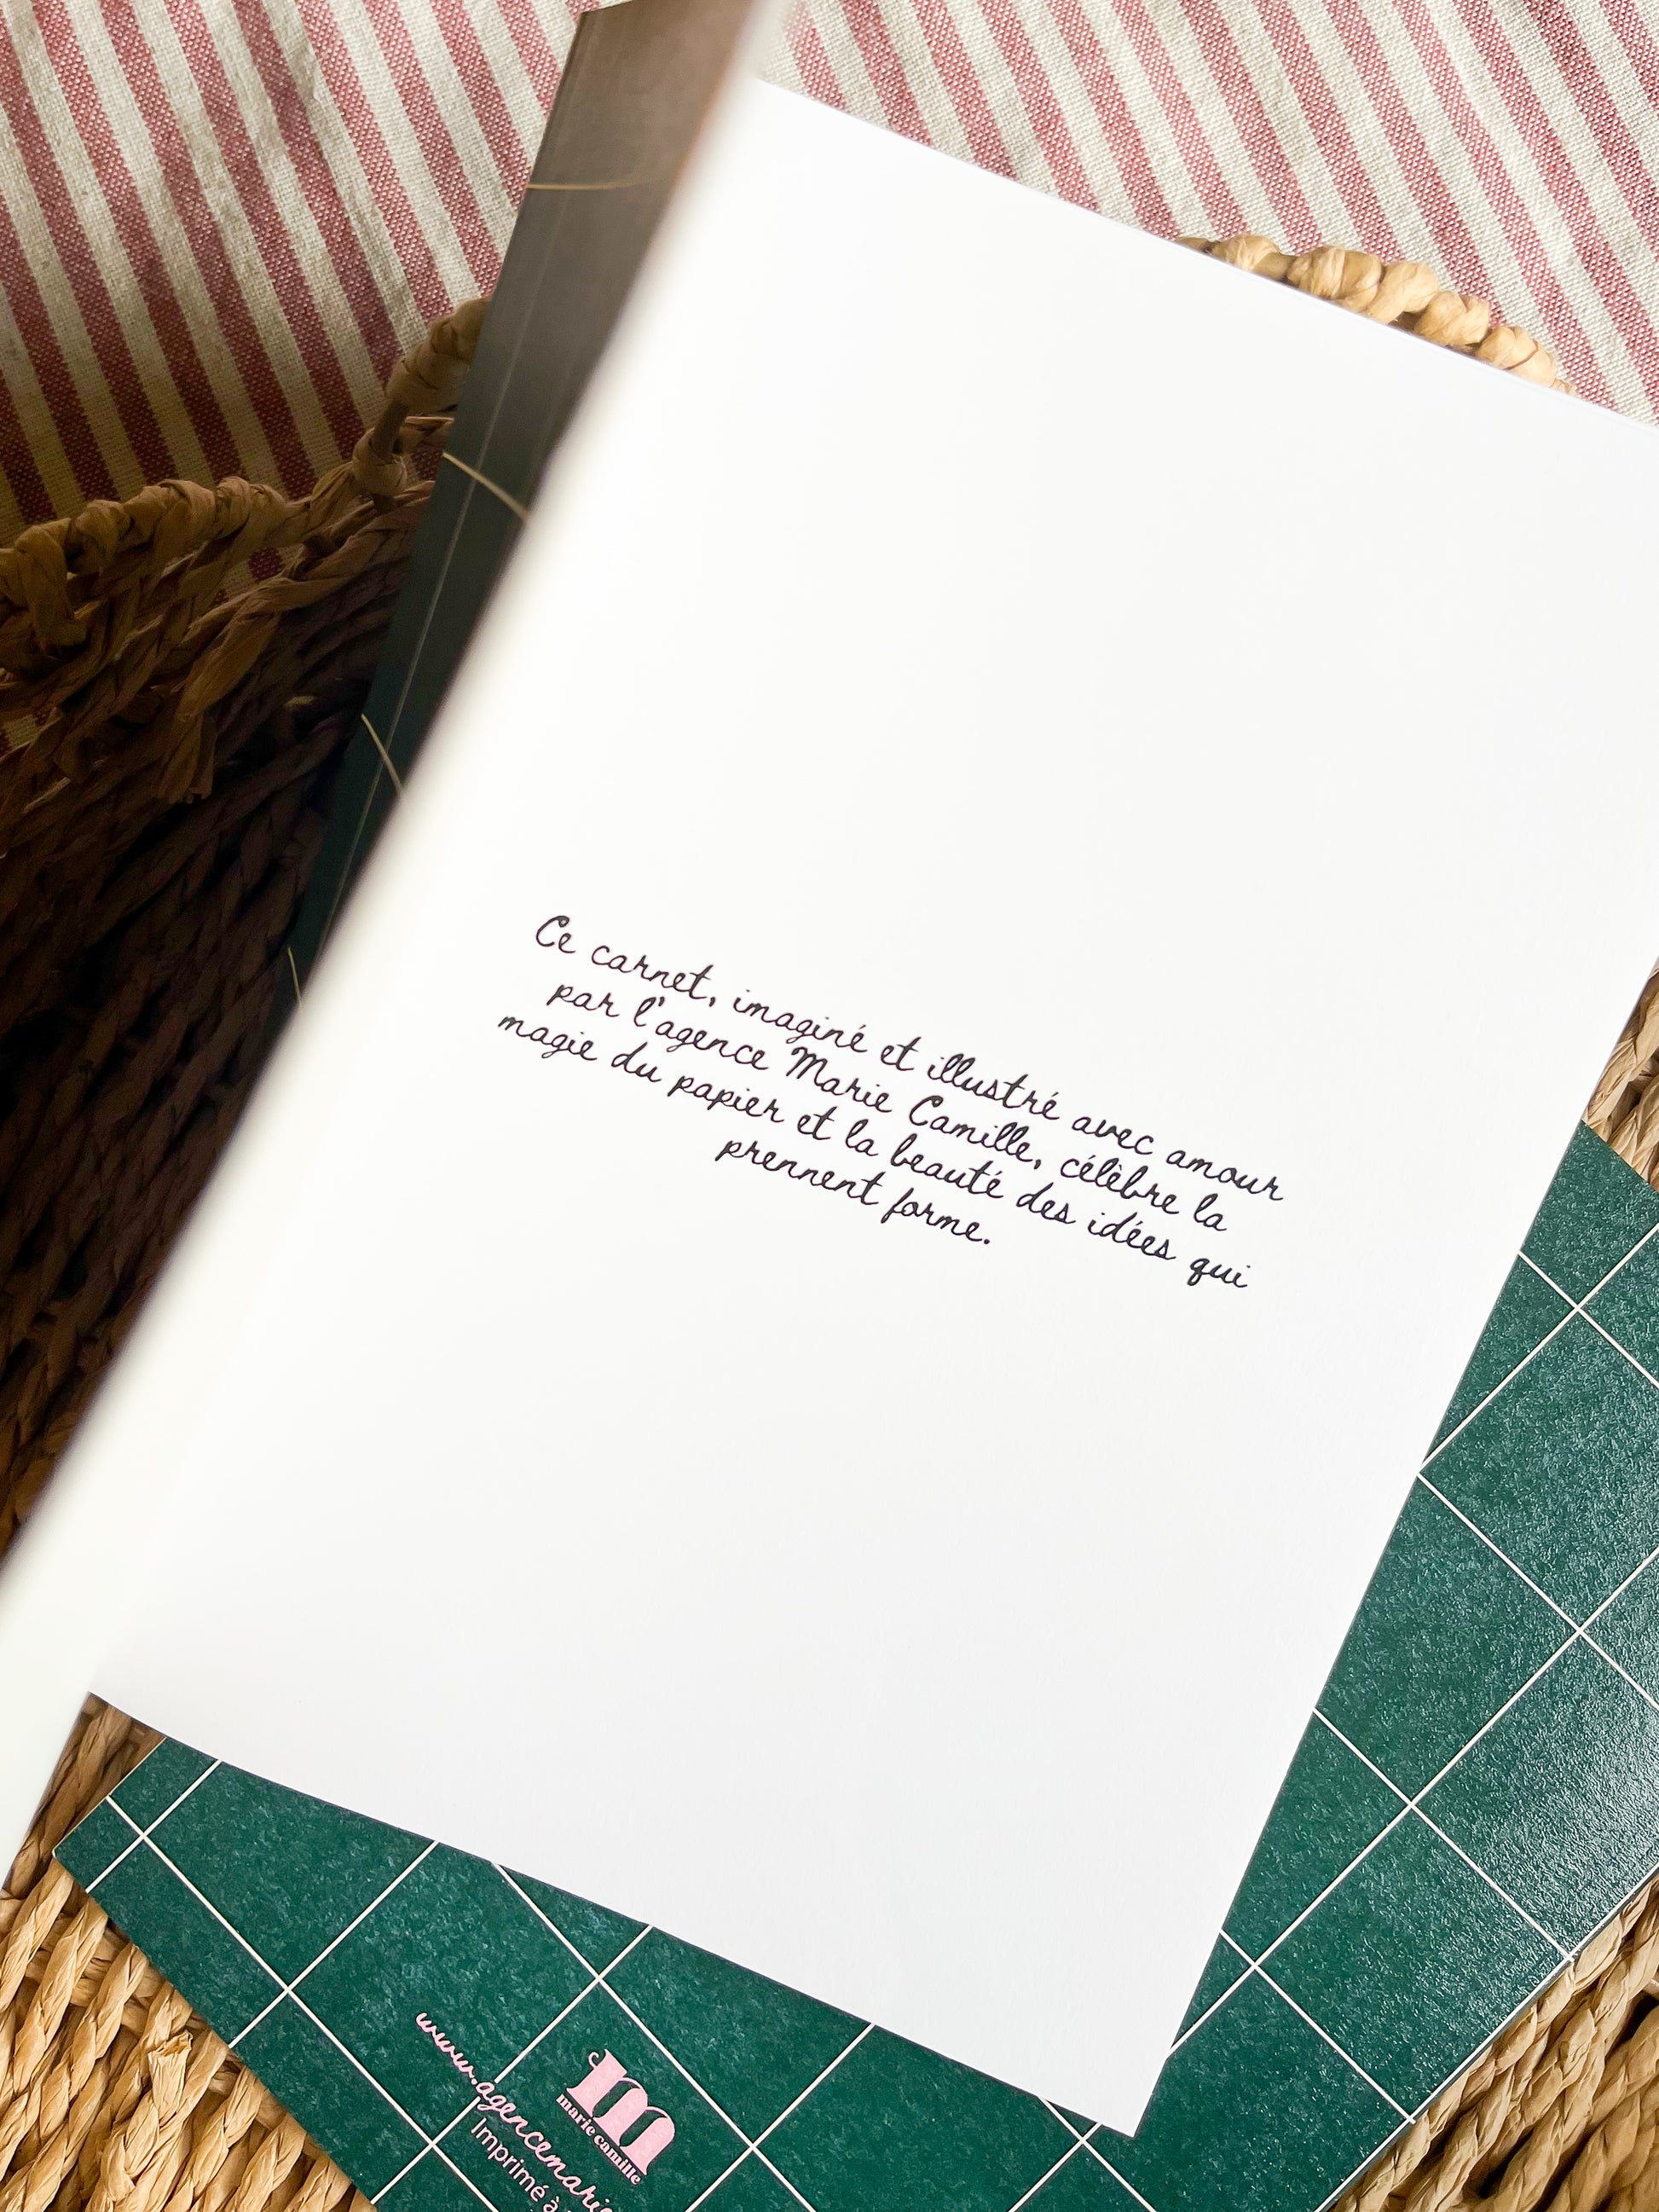 Ce carnet, imaginé et illustré avec amour
par l'agence Marie Camille, célèbre la
magie du papier et la beauté des idées qui
prennent forme.
m
marie camille
www.agencemarie
Imprimé à